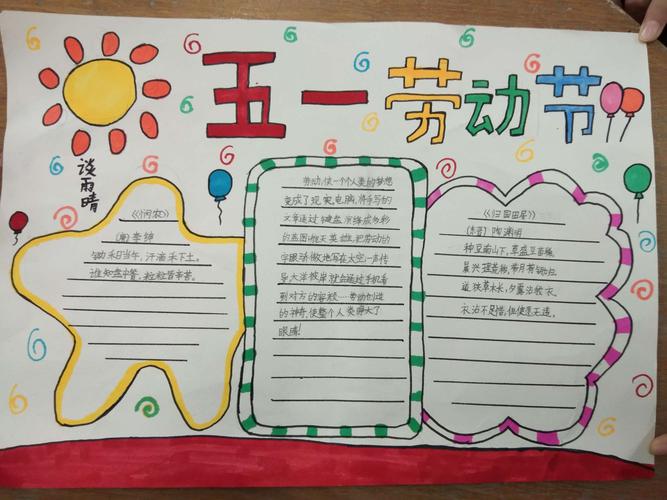 五一劳动节
谈雨晴
《悯农》
(唐)李绅
锄禾日当午，汗滴禾下土。
谁知盘中餐，粒粒皆辛苦。
劳动，使一个个人类的梦想
变成了现实，电脑，将手写的
文章通过键盘演绎成多彩
的蓝图;航天英雄，把劳动的
字眼动 傲地写在太空;一声传
导大洋彼岸就会通过手机看
到对方的容貌……劳动创造
的神奇，使整个人类睁大了
眼睛！
《归园田居》
(东晋)陶渊明
种豆南山下，草盛豆苗稀。
晨兴理荒秽，带月荷锄归。
道狭草木长，夕露沾我衣。
衣沾不足惜，但使愿无违。